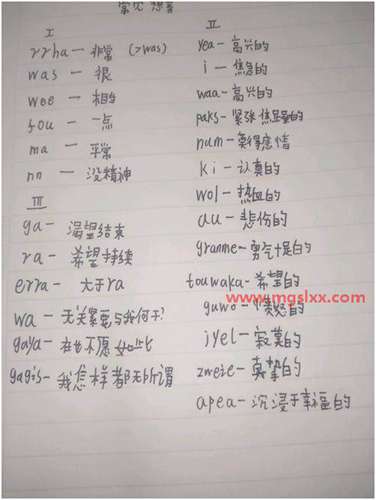 常见想音
I
rrha — 非常 (>was)
was — 很
wee — 相当
fou — 一点
ma — 平常
nn — 没精神
III
ga — 渴望结束
ra — 希望持续
erra — 大于ra
wa — 无关紧要与我何干?
gaya — 在也不愿如此
gagis — 我怎样都无所谓
II
yea — 高兴的
i — 焦急的
waa — 高兴的
paks — 紧张焦虑的
num — 莫得感情
ki — 认真的
wol — 热血的
au — 悲伤的
granme — 勇气十足的
touwaka — 希望的
guwo — 愤怒的
iyel — 寂寞的
zweie — 真挚的
apea — 沉浸于幸福的
www.mgslxx.com